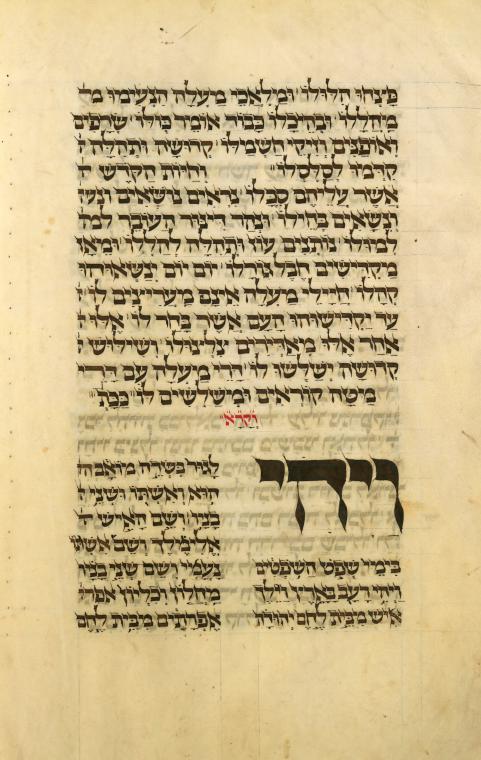 פיצחו הלולו ומלאכי מעלה הנעימו
מחללו ובהיכלו כבוד אומר כולו שרפים
ואופנים וזיקי חשמלו קדושה ותהלה
קדמו לסלסלו וחיות הקדש
אשר עליהם סבלו נראים נושאים
ונשאים בחילו ונהר דינור העובר
למולו נותנים עוז ותהלה להללו ומאז
מקדישים חבל גורלו יום יום ינשאוהו
קהלו חיילי מעלה אינם מעריצים לו
עד יקדישוהו העם אשר בחר לו אלו
אחר אלו מאדירים צלצולו ושילוש
קדושה ישלשו לו דרי מעלה עם דרי
מטה קוראים ומשלשים לו ככת
וקרא
ויהי
בימי שפט השפטים
ויהי רעב בארץ וילך
איש מבית לחם יהודה
לגור בשדה מואב
הוא ואשתו ושני
בניו ושם האיש
אלימלך ושם אשתו
נעמי ושם שני בניו
מחלון וכליון
אפרתים מבית לחם